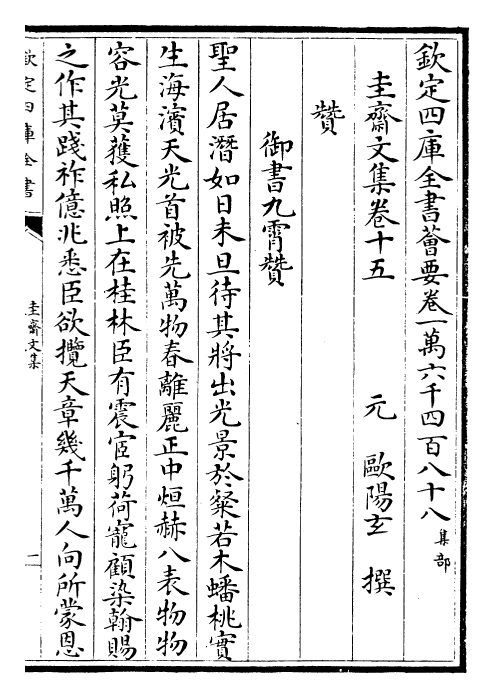 欽定四庫全書薈要卷一萬六千四百八十八集部
圭齋文集卷十五　元　歐陽玄　撰
贊
御書九霄贊
聖人居潛如日未旦待其將出光景於粲若木蟠桃實
生海濱天光首被先萬物春離麗正中烜赫八表物物
容光莫䕶私照上在桂林臣有震宧躬荷寵顧染翰賜
之作其踐祚億兆悉臣欲攬天章幾千萬人向所蒙恩
欽定四庫全書
圭齋文集
一